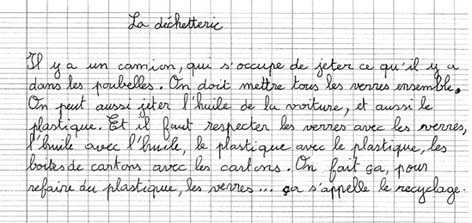 La déchetterie
Il y a un camion, qui s'occupe de jeter ce qu'il y a
dans les poubelles. On doit mettre tous les verres ensemble.
On peut aussi jeter l'huile de la voiture, et aussi le
plastique. Et il faut respecter les verres avec les verres,
l'huile avec l'huile, le plastique avec le plastique, les
boites de cartons avec les cartons. On fait ça, pour
refaire du plastique, les verres... ça s'appelle le recyclage.